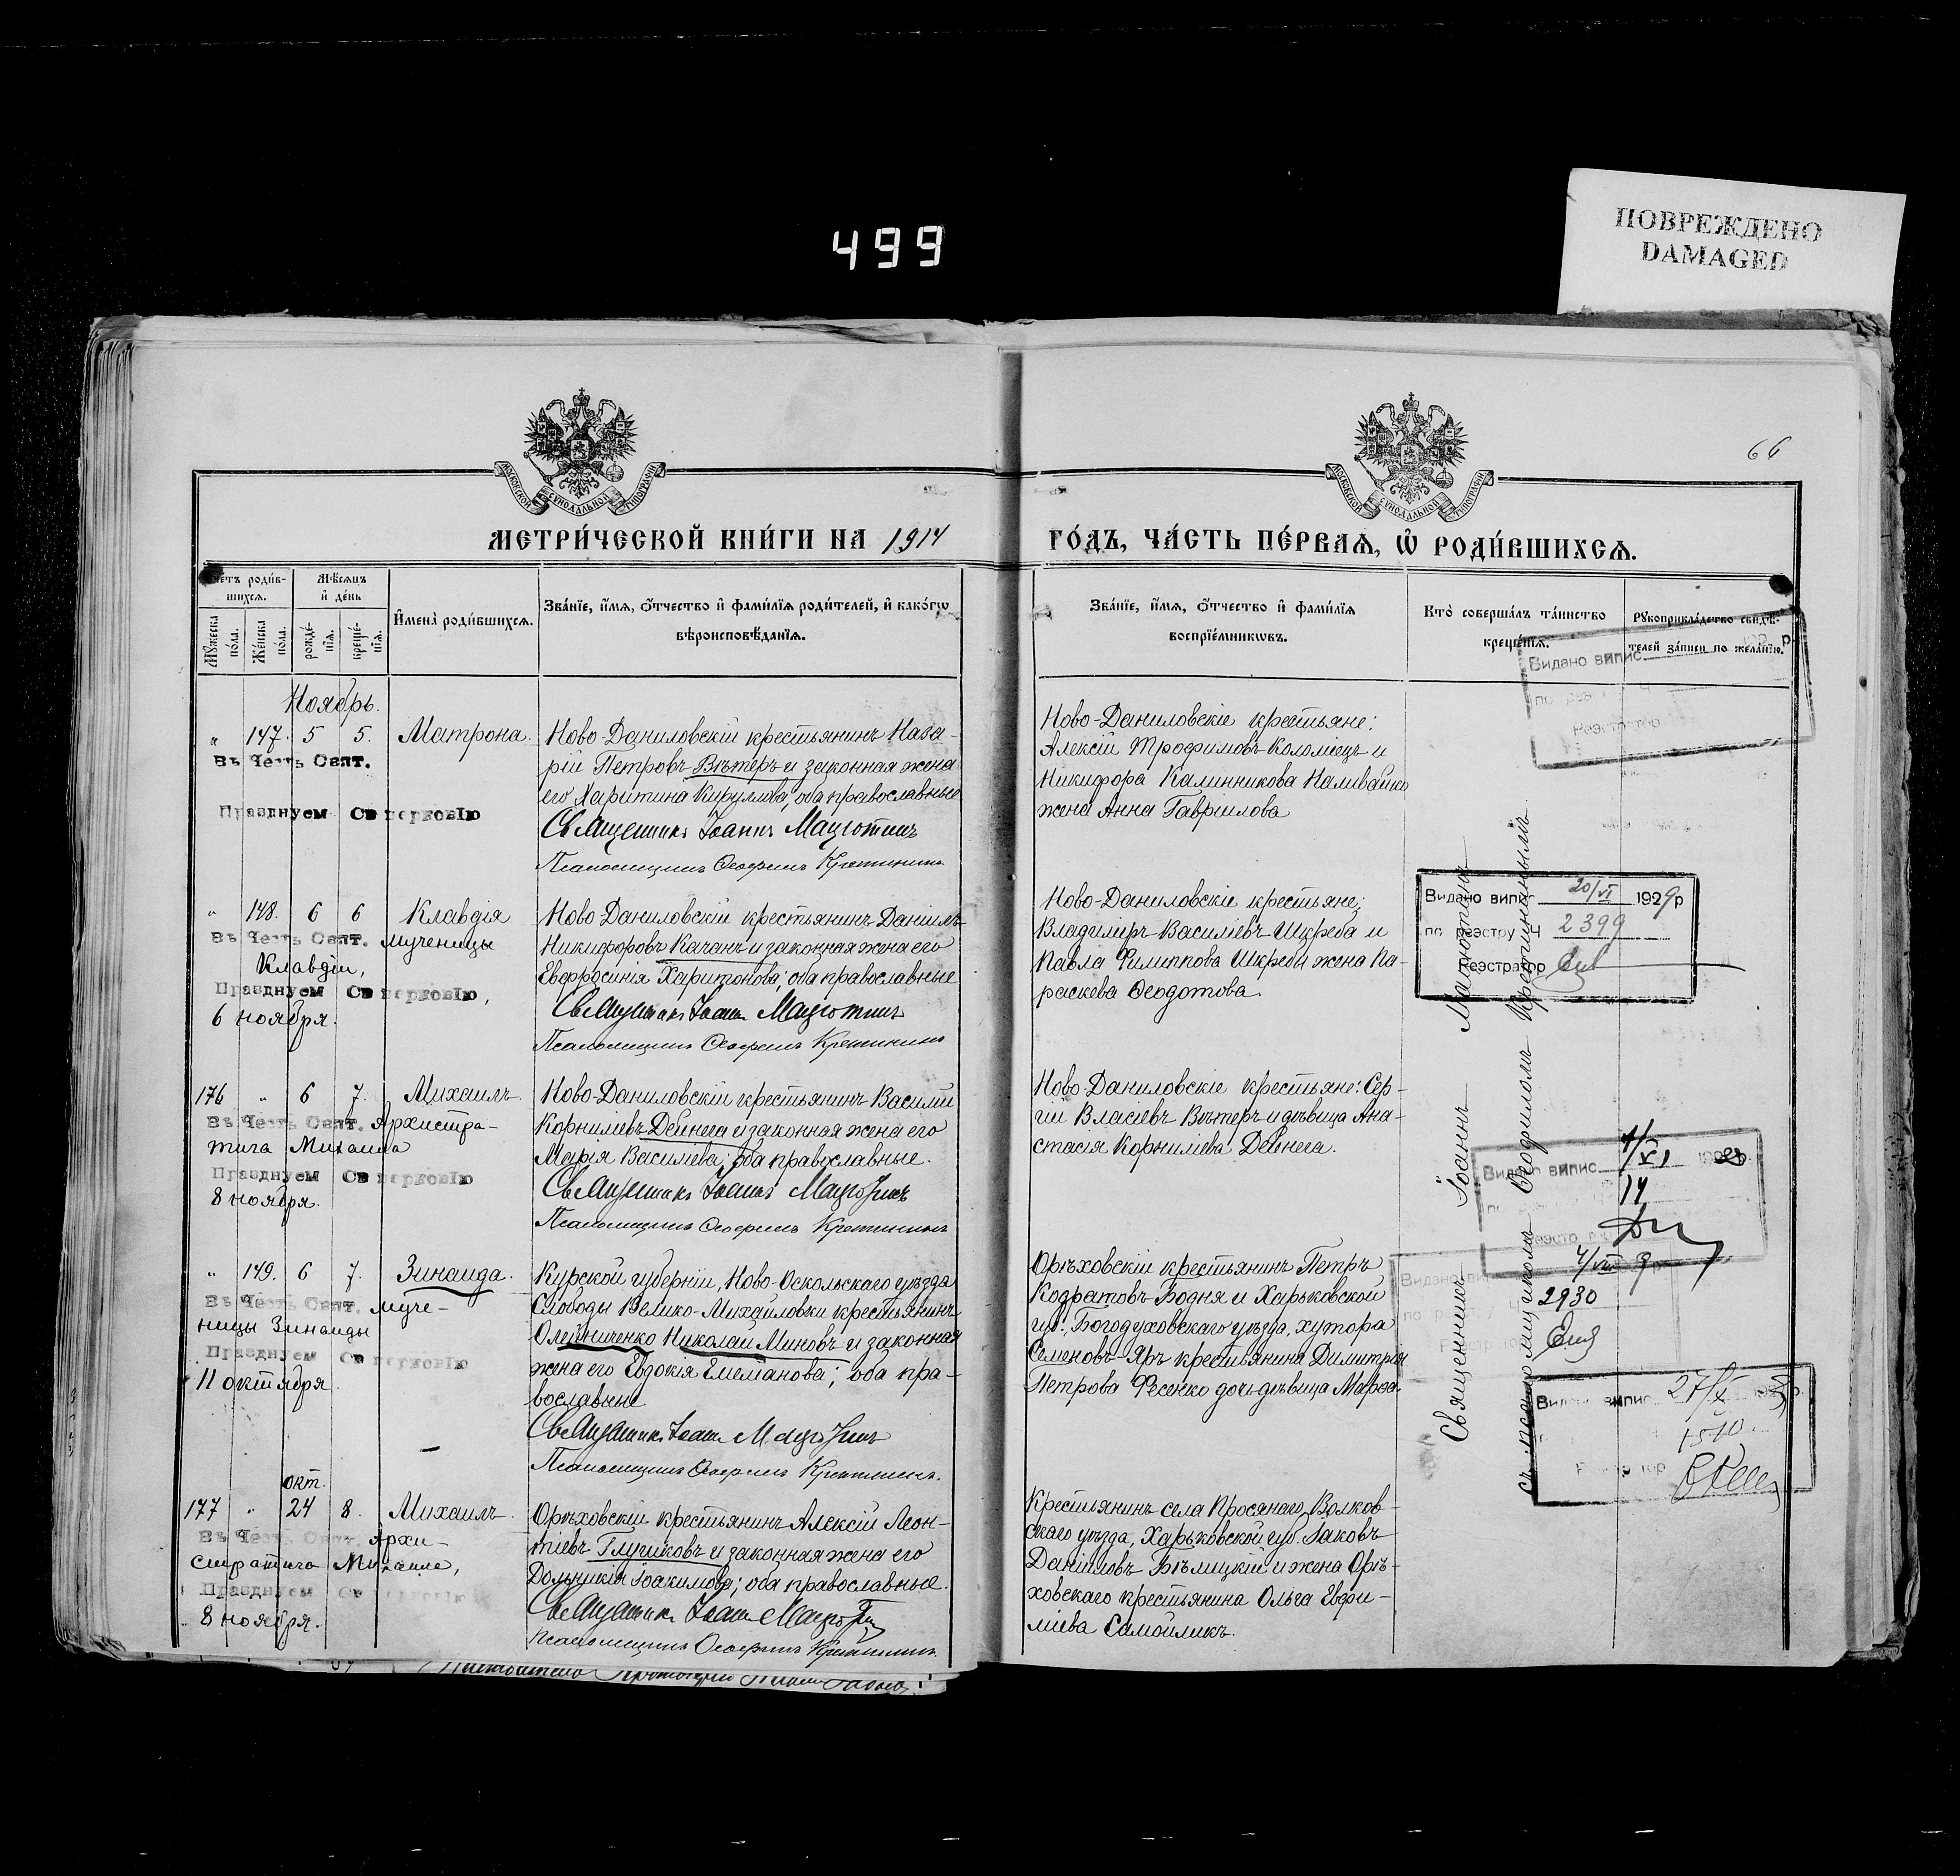 499
ПОВРЕЖДЕНО
DAMAGED
66
МОСКОВСКОЙ СѴНОДАЛЬНОЙ ТИПОГРАФІИ
МОСКОВСКОЙ СѴНОДАЛЬНОЙ ТИПОГРАФІИ
МЕТРИ́ЧЕСКОЙ КНИ́ГИ НА 1914 ГО́ДЪ, ЧА́СТЬ ПЕ́РВАѦ, Ѡ҆ РОДИ́ВШИХСѦ.
Сче́тъ роди́в-
шихсѧ.
Мꙋ́жеска по́ла.
Же́нска по́ла.
Мѣ́сѧцъ
и҆ де́нь
рожде́-
нїѧ.
креще́-
нїѧ.
И҆мена̀ роди́вшихсѧ.
Зва́нїе, и҆́мѧ, ѻ҆́тчество и҆ фами́лїѧ роди́телей, и҆ како́гѡ
вѣроисповѣ́данїѧ.
Зва́нїе, и҆́мѧ, ѻ҆́тчество и҆ фами́лїѧ
воспрїе́мникѡвъ.
Кто̀ соверша́лъ та́инство
креще́нїѧ.
Рꙋкоприкла́дство свидѣ́-
телей за́писи по жела́нїю.
Ноябрь.
" 147. 5 5. Матрона.
Въ Честь Свят.
Празднуем Св церковію
Ново-Даниловскій крестьянинъ Наза-
рій Петровъ Вѣтеръ и законная жена
его Харитина Кирулова, оба православные
Священникъ Іоаннъ Мацютинъ
Псаломщикъ Ѳеофилъ Кретининъ
Ново-Даниловскіе крестьяне:
Алексій Трофимовъ Коломіецъ и
Никифора Калинникова Наливайко
жена Анна Гавриилова
Видано випис
" 148. 6 6 Клавдія
Въ Честь Свят. мученицы
Клавдіи,
Празднуем Св церковію,
6 ноября.
Ново-Даниловскій крестьянинъ Даніилъ
Никифоровъ Качанъ и законная жена его
Евфросинія Харитонова; оба православные
Священникъ Іоаннъ Мацютинъ
Псаломщикъ Ѳеофилъ Кретининъ
Ново-Даниловскіе крестьяне:
Владиміръ Василіевъ Шкреба и
Павла Филиппова Шкребы жена Па-
раскева Ѳеодотова.
Видано випис 20/VI 1929р
по реэстру Ч 2399
Реэстратор
176 " 6 7. Михаилъ
Въ Честь Свят. Архистра-
тига Михаила
Празднуем Св церковію
8 ноября.
Ново-Даниловскій крестьянинъ Василій
Корниліевъ Дейнега и законная жена его
Марія Василіева; оба православные.
Священникъ Іоаннъ Мацютинъ
Псаломщикъ Ѳеофилъ Кретининъ
Ново-Даниловскіе крестьяне: Сер-
гій Власіевъ Вѣтеръ и дѣвица Ана-
стасія Корниліева Дейнега.
Видано випис
14
" 149. 6 7. Зинаида.
Въ Честь Свят. муче-
ницы Зинаиды
Празднуем Св церковію
11 октября
Курской губерніи, Ново-Оскольскаго уѣзда
Слободы Велико-Михайловки крестьянинъ
Олейниченко Николай Миновъ и законная
жена его Евдокія Емеманова; оба пра-
вославные
Священникъ Іоаннъ Мацютинъ
Псаломщикъ Ѳеофилъ Кретининъ.
Орѣховскій крестьянинъ Петръ
Кодратовъ Бодня и Харьковской
губ., Богодуховскаго уѣзда, хутора
Семеновъ-Яръ крестьянина Димитрія
Петрова Фесенко дочь дѣвица Марѳа.
4/VIII 9
2930
Видано випис 27/X
1510
окт.
177 " 24 8. Михаилъ
Въ Честь Свят. Архи-
стратига Михаила,
Празднуем Св церковію
8 ноября.
Орѣховскій крестьянинъ Алексій Леон-
тіевъ Глушковъ и законная жена его
Долыникія Іоакимова; оба православные.
Священникъ Іоаннъ Мацютинъ
Псаломщикъ Ѳеофилъ Кретининъ.
Крестьянинъ села Просянаго, Волков-
скаго уѣзда, Харьковской губ. Іаковъ
Даніиловъ Бѣлицкій и жена Орѣ-
ховскаго крестьянина Ольга Евфи-
міева Самойликъ.
Священникъ Іоаннъ Мацютинъ
съ псаломщикомъ Ѳеофиломъ Кретининымъ